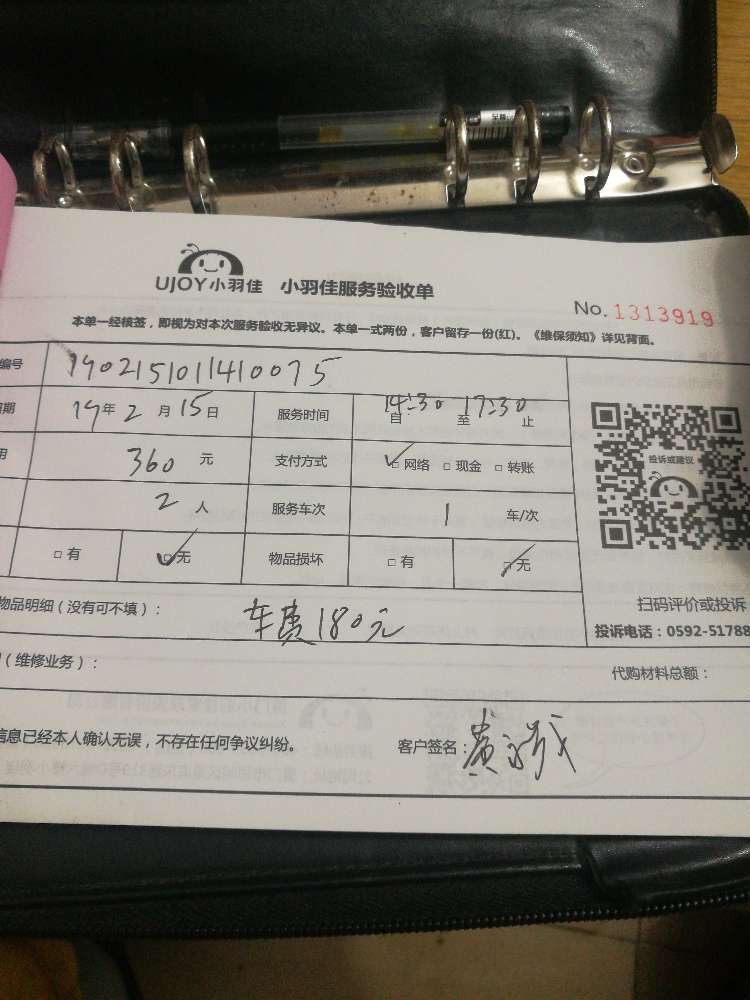 UJOY小羽佳 小羽佳服务验收单
No. 1313919
本单一经核签，即视为对本次服务验收无异议。本单一式两份，客户留存一份(红)。《维保须知》详见背面。
编号 1902151011410075
期 19年 2月 15日 服务时间 14:30 自 至 17:30 止
用 360元 支付方式 ☑网络 □现金 □转账
投诉或建议
2人 服务车次 1 车/次
□有 ☑无 物品损坏 □有 ☑无
扫码评价或投诉
物品明细（没有可不填）： 车费180元
投诉电话：0592-51788
（维修业务）：
代购材料总额：
信息已经本人确认无误，不存在任何争议纠纷。 客户签名：黄